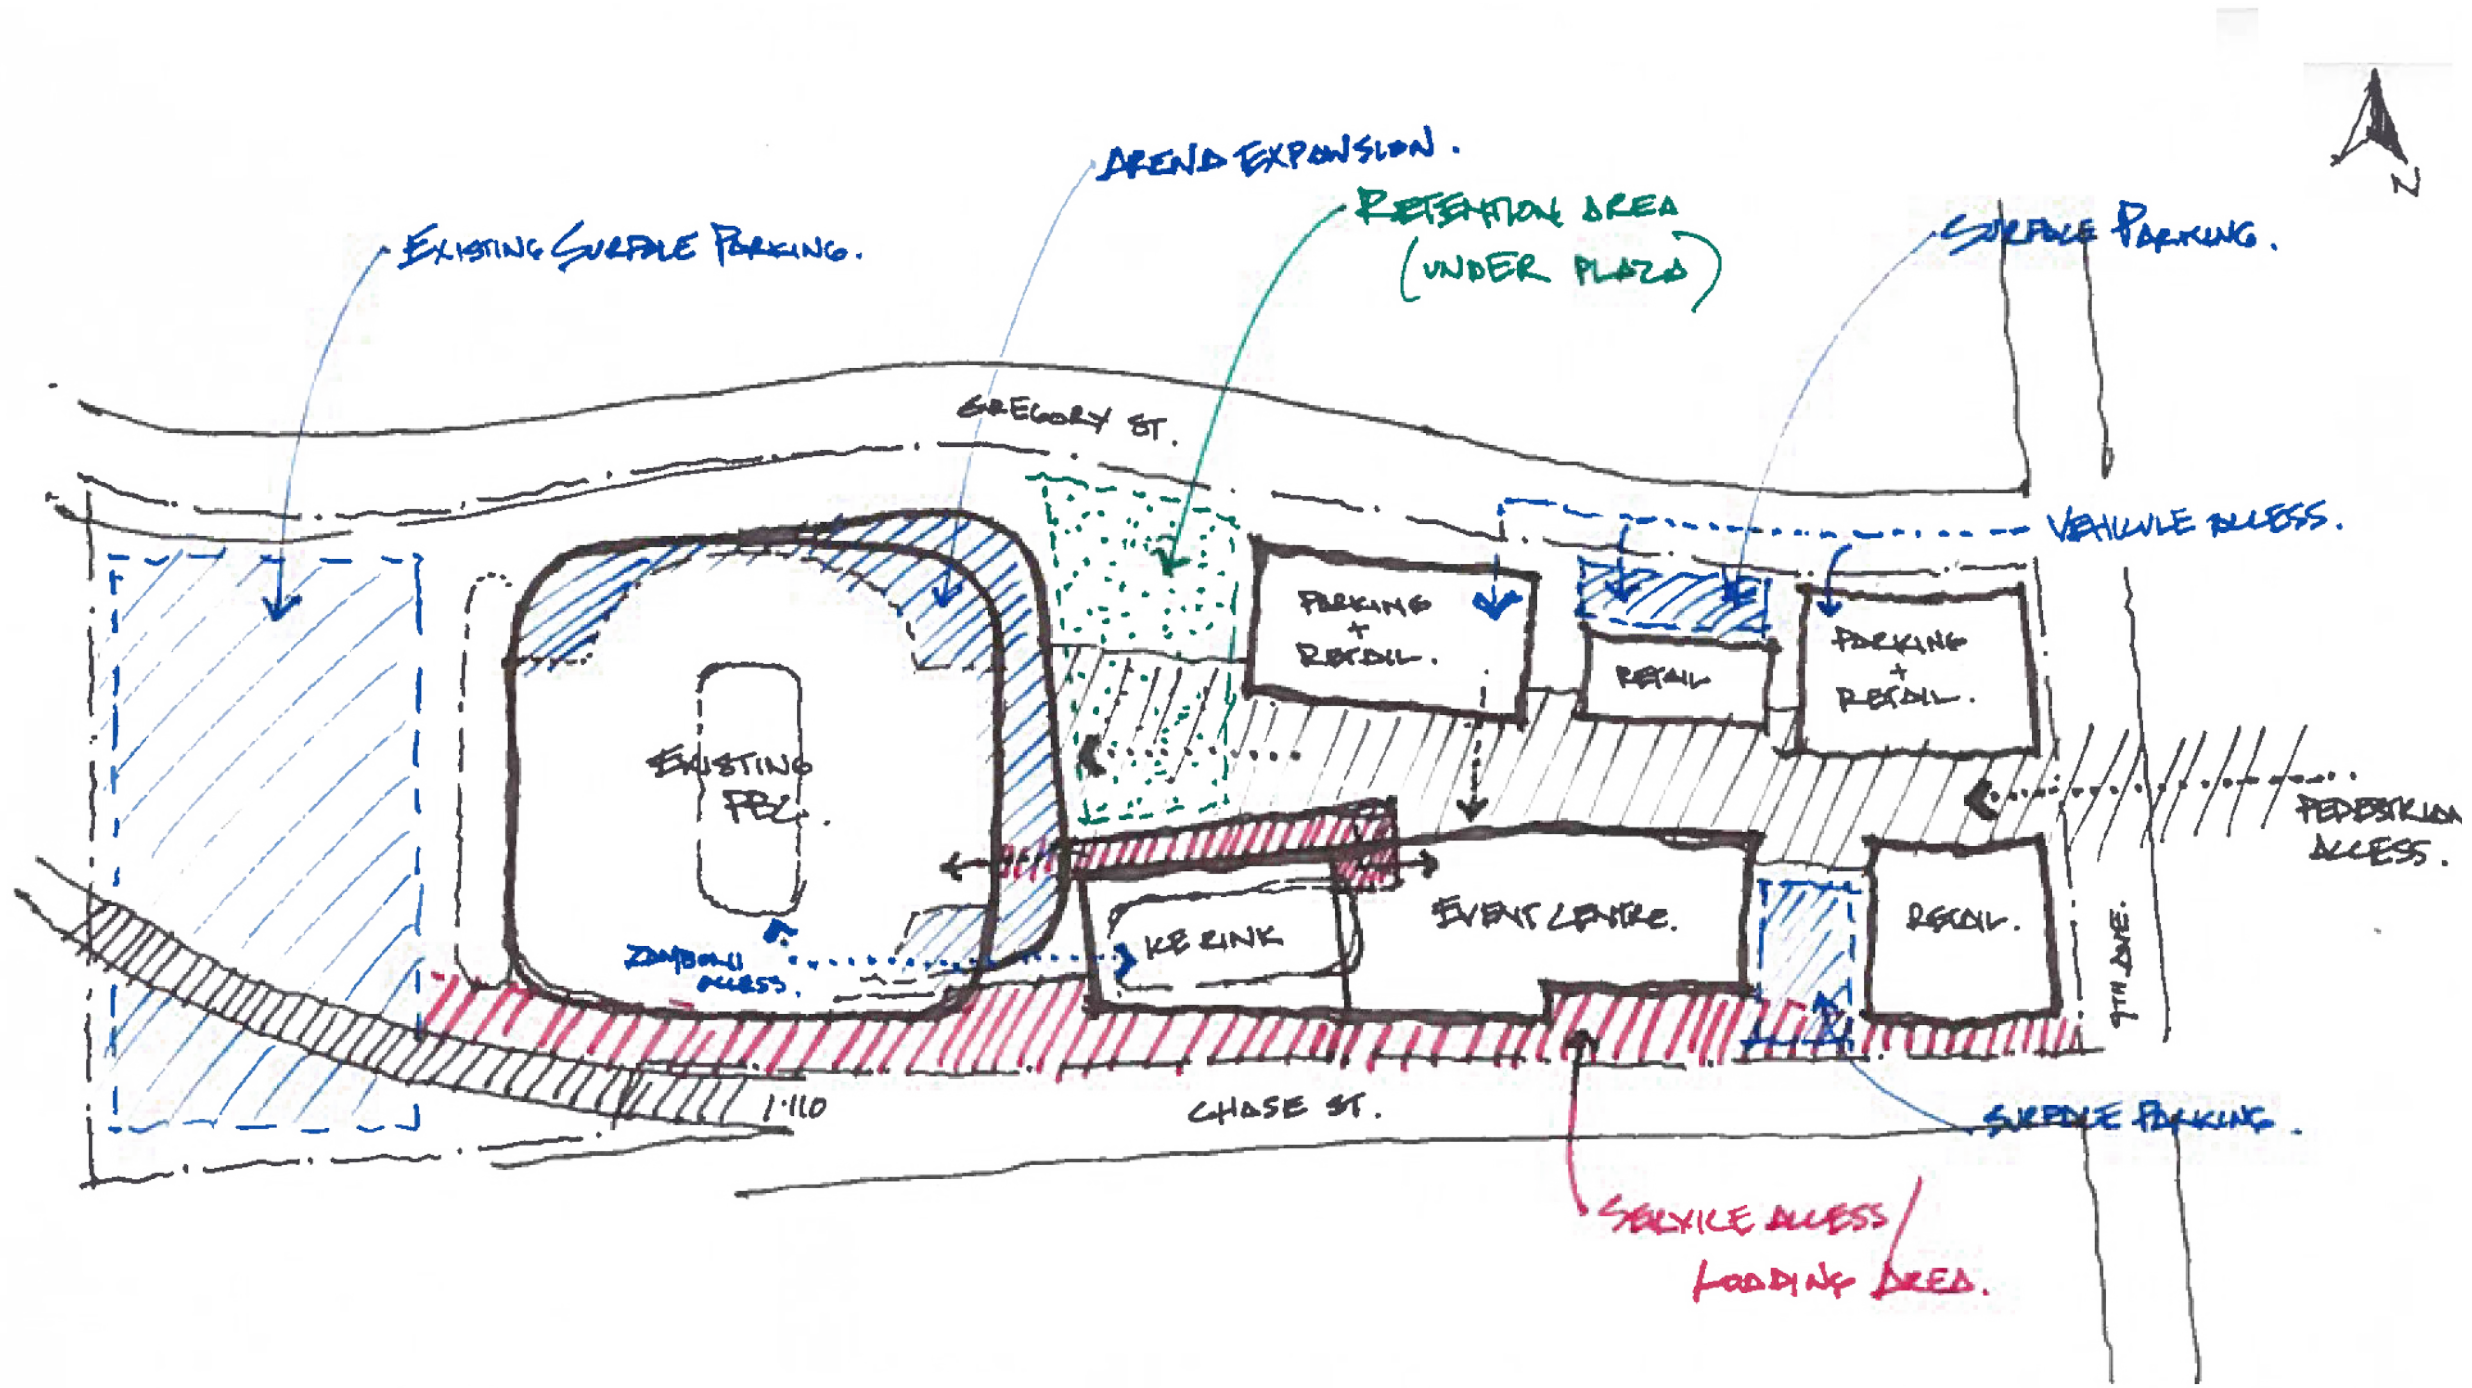 ARENA EXPANSION.
RETENTION AREA
(UNDER PLAZA)
EXISTING SURFACE PARKING.
SURFACE PARKING.
N
GREGORY ST.
VEHICULE ACCESS.
PARKING
+
RETAIL.
RETAIL
PARKING
+
RETAIL.
EXISTING
PBC.
PEDESTRIAN
ACCESS.
EVENT CENTRE.
RETAIL.
ICE RINK
ZAMBONI
ACCESS.
9TH AVE.
I-110
CHASE ST.
SURFACE PARKING.
SERVICE ACCESS/
LOADING AREA.